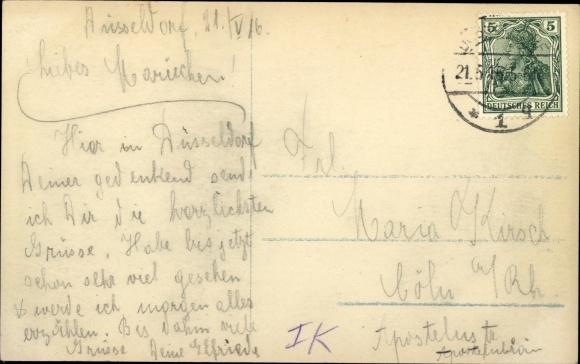 Düsseldorf, 21./V 16.
Liebes Mariechen!
Hier in Düsseldorf
Deiner gedenkend sende
ich Dir die herzlichsten
Grüsse. Habe bis jetzt
schon sehr viel gesehen
& werde ich morgen alles
erzählen. Bis dahin viele
Grüsse Deine Elfriede
5 5
DEUTSCHES REICH
21.5
* 1
Frl.
Maria Kirsch
Cöln a/Rh.
Apostelnstr
IK